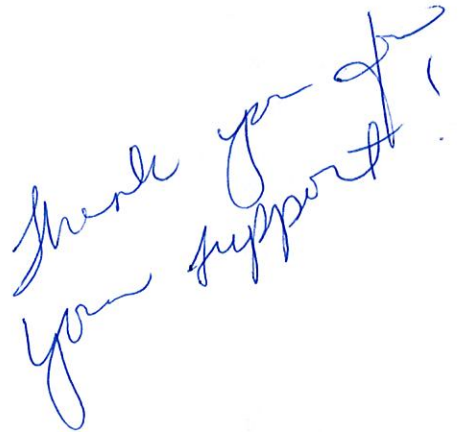 Thank you for
your support!